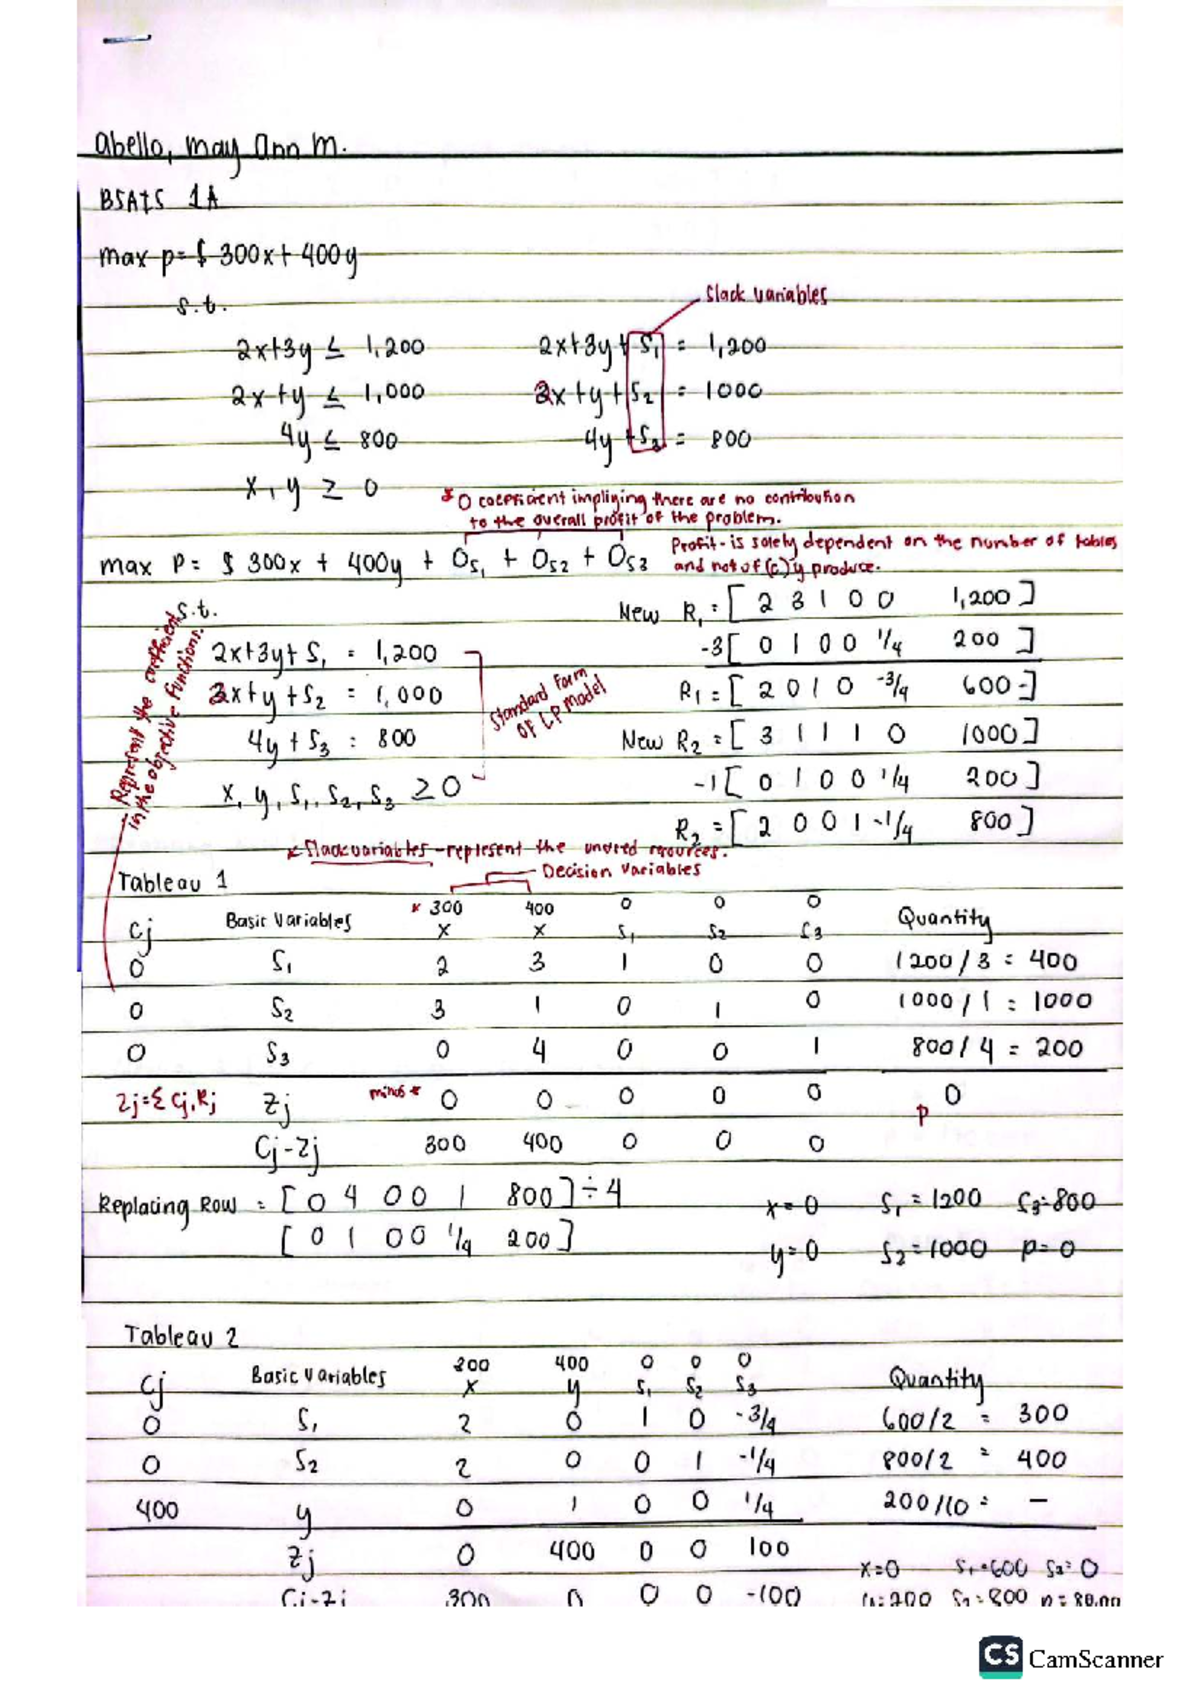 Abello, May Ann M.
BSAIS 1A
max p = $ 300x + 400y
s.t.
Slack variables
2x+3y ≤ 1,200    2x+3y + S1 = 1,200
2x+y ≤ 1,000    3x+y+ S2 = 1000
4y ≤ 800    4y +S3 = 800
x, y ≥ 0
* 0 coefficient impliying there are no contribution
to the overall profit of the problem.
max P = $ 300x + 400y + 0S1 + 0S2 + 0S3
Profit - is solely dependent on the number of tables
and not of (c) y produce.
s.t.
2x+3y+ S1 = 1,200
3x+y + S2 = 1,000
4y + S3 = 800
x, y, S1, S2, S3 ≥ 0
Standard Form
OF LP Model
Represent the coefficients
in the objective functions.
New R1 = [ 2 3 1 0 0 1,200 ]
-3 [ 0 1 0 0 1/4 200 ]
R1 = [ 2 0 1 0 -3/4 600 ]
New R2 = [ 3 1 1 1 0 1000 ]
-1 [ 0 1 0 0 1/4 200 ]
R2 = [ 2 0 0 1 -1/4 800 ]
* Slack variables - represent the unused resources.
Decision Variables
Tableau 1
* 300 400 0 0 0
Cj Basic Variables x x S1 S2 S3 Quantity
0 S1 2 3 1 0 0 1200 / 3 = 400
0 S2 3 1 0 1 0 1000 / 1 = 1000
0 S3 0 4 0 0 1 800 / 4 = 200
Zj=Σ Cj.Rj Zj minus * 0 0 0 0 0 P 0
Cj-Zj 300 400 0 0 0
Replacing Row = [ 0 4 0 0 1 800 ] ÷ 4
[ 0 1 0 0 1/4 200 ]
x = 0 S1 = 1200 S3 = 800
y = 0 S2 = 1000 p = 0
Tableau 2
300 400 0 0 0
Cj Basic Variables x y S1 S2 S3 Quantity
0 S1 2 0 1 0 -3/4 600/2 = 300
0 S2 2 0 0 1 -1/4 800/2 = 400
400 y 0 1 0 0 1/4 200/10 = -
Zj 0 400 0 0 100
x=0 S1=600 S3=0
Cj-Zj 300 0 0 0 -100
y=200 S2=800
CS CamScanner